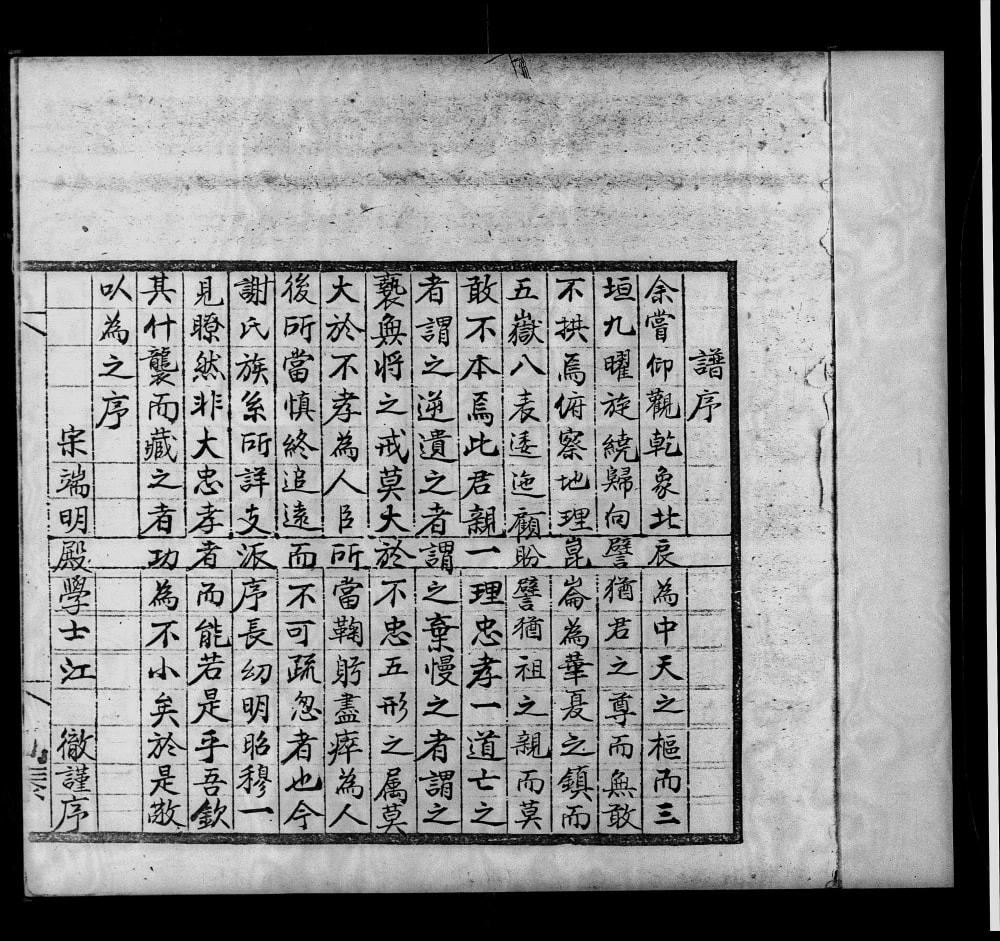 譜序
余嘗仰觀乾象北辰為中天之樞而三
垣九曜旋繞歸向譬猶君之尊而無敢
不拱焉俯察地理崑崙為華夏之鎮而
五嶽八表逶迤顧盼譬猶祖之親而莫
敢不本焉此君親一理忠孝一道亡之
者謂之逆遺之者謂之棄慢之者謂之
褻無將之戒莫大於不忠五形之属莫
大於不孝為人臣所當鞠躬盡瘁為人
後所當慎終追遠而不可疏忽者也今
謝氏族系所詳支派序長幼明昭穆一
見瞭然非大忠孝者而能若是乎吾欽
其什襲而藏之者功為不小矣於是敬
以為之序
宋端明殿學士江 徹謹序